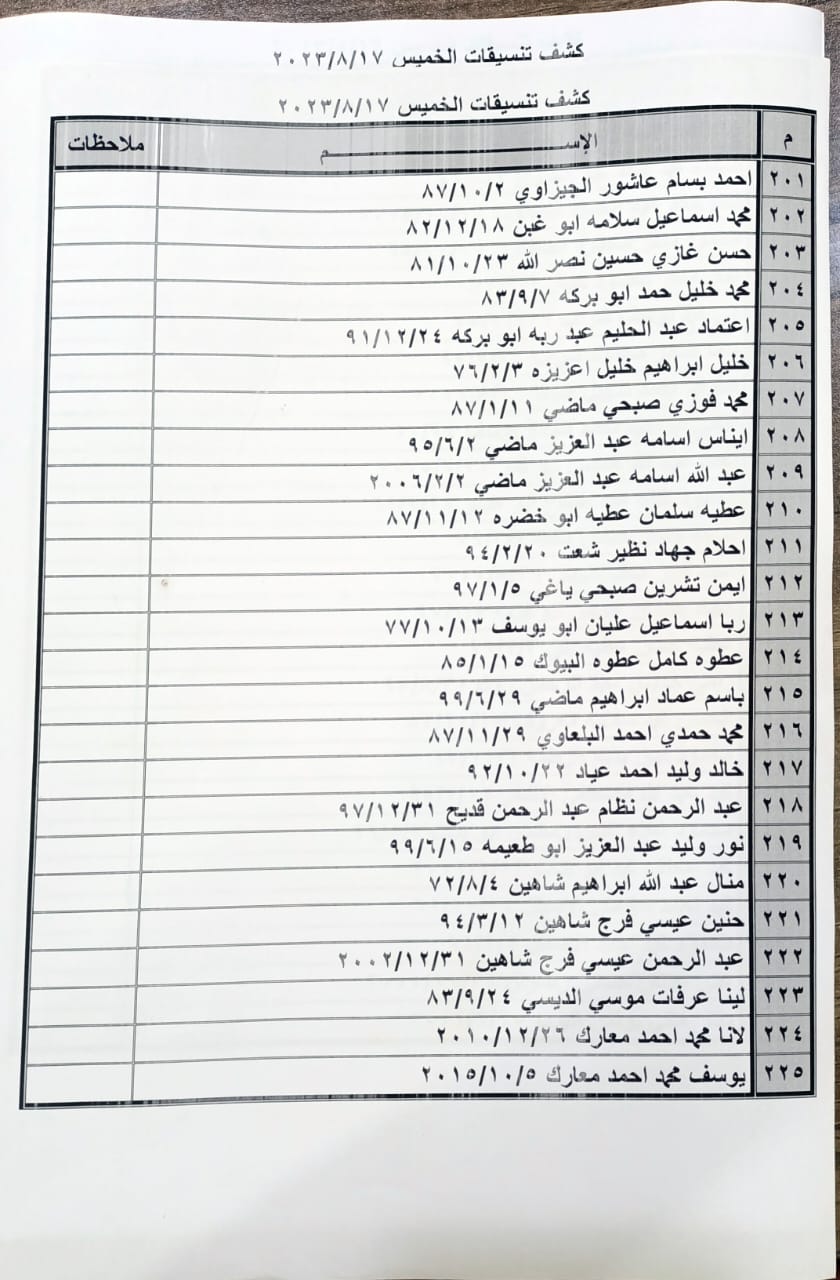 كشف تنسيقات الخميس ٢٠٢٣/٨/١٧
كشف تنسيقات الخميس ٢٠٢٣/٨/١٧
م الإســــــــم ملاحظات
٢٠١ احمد بسام عاشور الجيزاوي ٨٧/١٠/٢
٢٠٢ محمد اسماعيل سلامه ابو غبن ٨٢/١٢/١٨
٢٠٣ حسن غازي حسين نصر الله ٨١/١٠/٢٣
٢٠٤ محمد خليل حمد ابو بركه ٨٣/٩/٧
٢٠٥ اعتماد عبد الحليم عبد ربه ابو بركه ٩١/١٢/٢٤
٢٠٦ خليل ابراهيم خليل اعزيزه ٧٦/٢/٣
٢٠٧ محمد فوزي صبحي ماضي ٨٧/١/١١
٢٠٨ ايناس اسامه عبد العزيز ماضي ٩٥/٦/٢
٢٠٩ عبد الله اسامه عبد العزيز ماضي ٢٠٠٦/٢/٢
٢١٠ عطيه سلمان عطيه ابو خضره ٨٧/١١/١٢
٢١١ احلام جهاد نظير شعت ٩٤/٢/٢٠
٢١٢ ايمن تشرين صبحي ياغي ٩٧/١/٥
٢١٣ ربا اسماعيل عليان ابو يوسف ٧٧/١٠/١٣
٢١٤ عطوه كامل عطوه البيوك ٨٥/١/١٥
٢١٥ باسم عماد ابراهيم ماضي ٩٩/٦/٢٩
٢١٦ محمد حمدي احمد البلعاوي ٨٧/١١/٢٩
٢١٧ خالد وليد احمد عياد ٩٢/١٠/٢٢
٢١٨ عبد الرحمن نظام عبد الرحمن قديح ٩٧/١٢/٣١
٢١٩ نور وليد عبد العزيز ابو طعيمه ٩٩/٦/١٥
٢٢٠ منال عبد الله ابراهيم شاهين ٧٢/٨/٤
٢٢١ حنين عيسي فرج شاهين ٩٤/٣/١٢
٢٢٢ عبد الرحمن عيسي فرج شاهين ٢٠٠٢/١٢/٣١
٢٢٣ لينا عرفات موسي الديسي ٨٣/٩/٢٤
٢٢٤ لانا محمد احمد معارك ٢٠١٠/١٢/٢٦
٢٢٥ يوسف محمد احمد معارك ٢٠١٥/١٠/٥